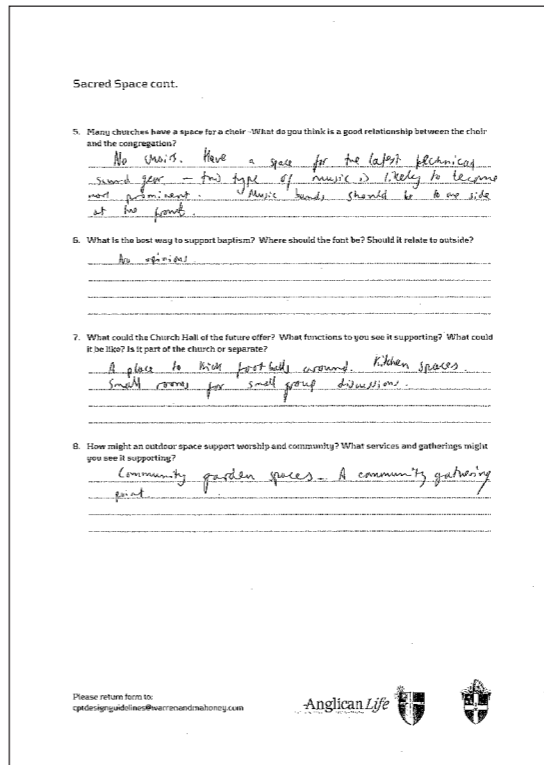 Sacred Space cont.
5. Many churches have a space for a choir -What do you think is a good relationship between the choir
and the congregation?
No Have a space for the latest technical
sound gear - this type of music is likely to become
more prominent. Music bands should be to one side
at the front.
6. What is the best way to support baptism? Where should the font be? Should it relate to outside?
No opinions
7. What could the Church Hall of the future offer? What functions to you see it supporting? What could
it be like? Is it part of the church or separate?
A place to kick footballs around. Kitchen spaces.
Small rooms for small group discussions.
8. How might an outdoor space support worship and community? What services and gatherings might
you see it supporting?
Community garden spaces - A community gathering
point
Please return form to:
cptdesignguidelines@warrenandmahoney.com
Anglican Life